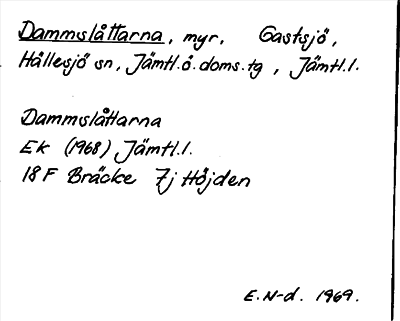 Dammslåttarna, myr. Gastsjö,
Hållesjö sn, Jämtl.ö.doms.tg, Jämtl.l.
Dammslåttarna
Ek (1968) Jämtl.l.
18F Bräcke 7j Höjden
E.N-d. 1969.